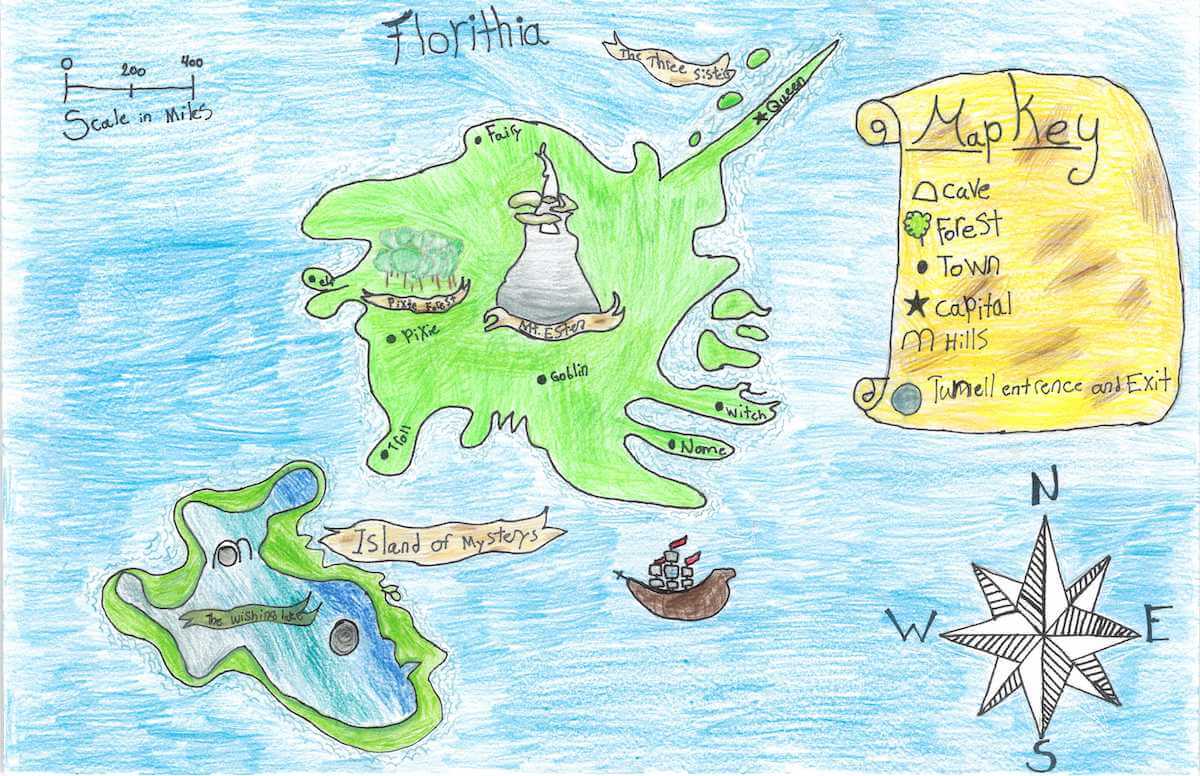 Florithia
0 200 400
Scale in Miles
The Three Sisters
Queen
Fairy
elf
Pixie Forest
Mt. Ester
Pixie
Goblin
Witch
Nome
Troll
Island of Mysterys
The Wishing lake
Map Key
cave
Forest
Town
Capital
Hills
Tunnell entrence and Exit
N
W E
S